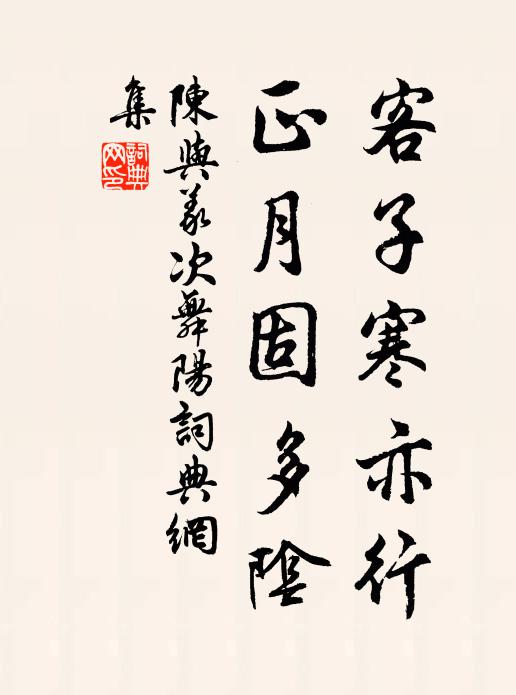 客子寒亦行
正月固多陰
陳與義次舞陽詞典網
集
詞典网印